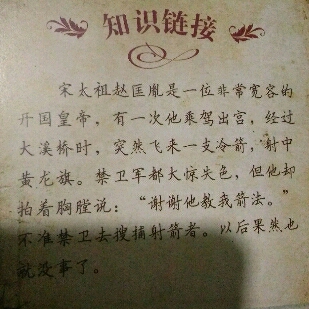 知识链接
宋太祖赵匡胤是一位非常宽容的
开国皇帝，有一次他乘驾出宫，经过
大溪桥时，突然飞来一支冷箭，射中
黄龙旗。禁卫军都大惊失色，但他却
拍着胸膛说：“谢谢他教我箭法。”
不准禁卫去搜捕射箭者。以后果然也
就没事了。